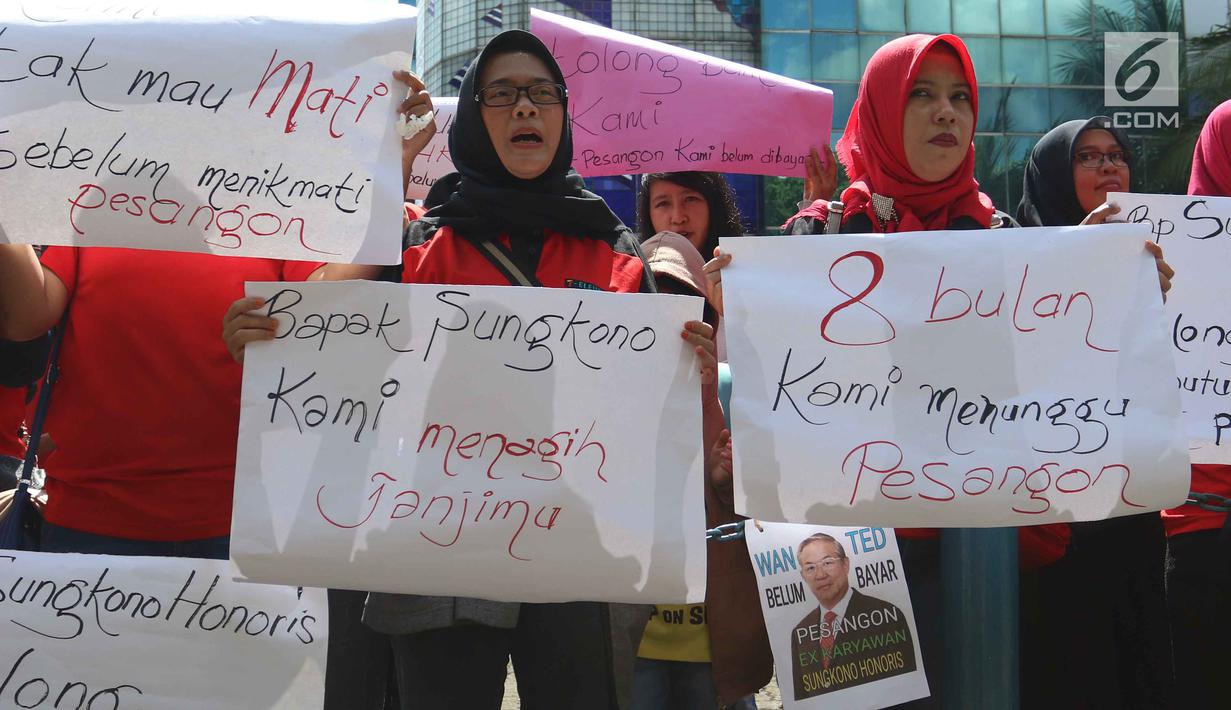 tak mau Mati
Sebelum menikmati
pesangon
tolong
Kami
Pesangon Kami belum dibaya
6
.COM
Bapak Sungkono
Kami menagih
Janjimu
8 bulan
Kami Menunggu
Pesangon
Bp
Sungkono Honoris
WANTED
BELUM BAYAR
PESANGON
EX KARYAWAN
SUNGKONO HONORIS